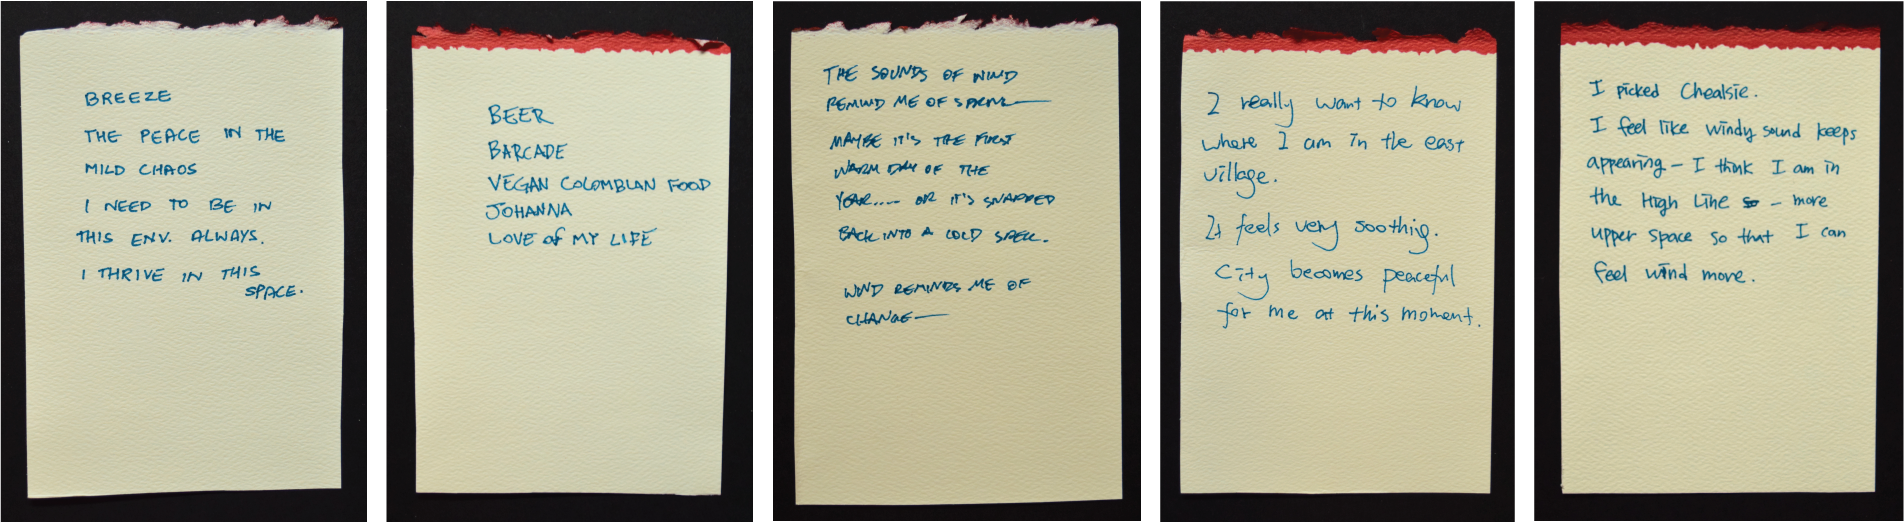 BREEZE
THE PEACE IN THE
MILD CHAOS
I NEED TO BE IN
THIS ENV. ALWAYS.
I THRIVE IN THIS
SPACE.
BEER
BARCADE
VEGAN COLOMBIAN FOOD
JOHANNA
LOVE of MY LIFE
THE SOUNDS OF WIND
REMIND ME OF SPRING—
MAYBE IT'S THE FIRST
WARM DAY OF THE
YEAR.... OR IT'S SNAPPED
BACK INTO A COLD SPELL.
WIND REMINDS ME OF
CHANGE—
I really want to know
where I am in the east
village.
It feels very soothing.
City becomes peaceful
for me at this moment.
I picked Chealsie.
I feel like windy sound keeps
appearing – I think I am in
the High Line – more
upper space so that I can
feel wind more.